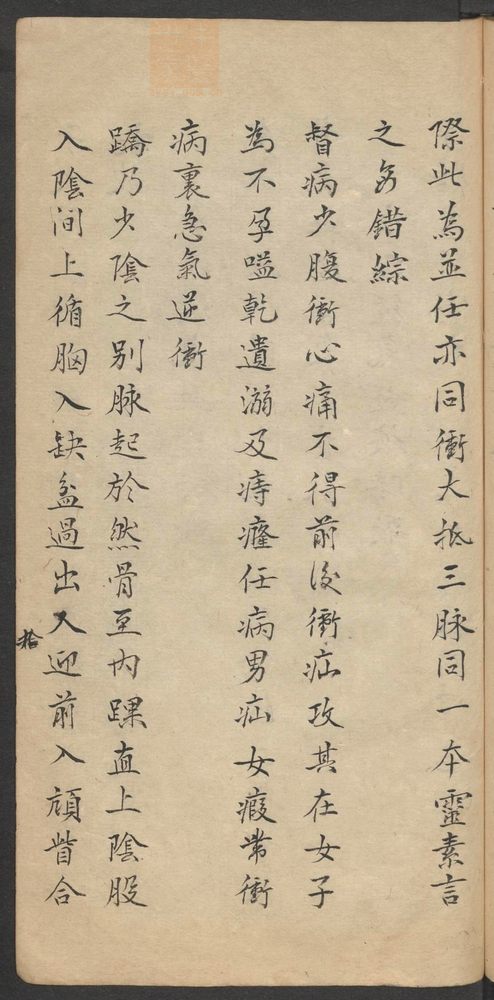 際此為並任亦同衝大抵三脉同一本靈素言
之多錯綜
督病少腹衝心痛不得前後衝疝攻其在女子
為不孕嗌乾遺溺及痔癃任病男疝女瘕帶衝
病裏急氣逆衝
蹻乃少陰之别脉起於然骨至内踝直上陰股
入陰间上循胸入缺盆過出人迎前入頄眥合
拾